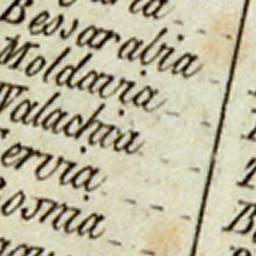 Bessarabia
Moldavia
Walachia
Servia
Bosnia